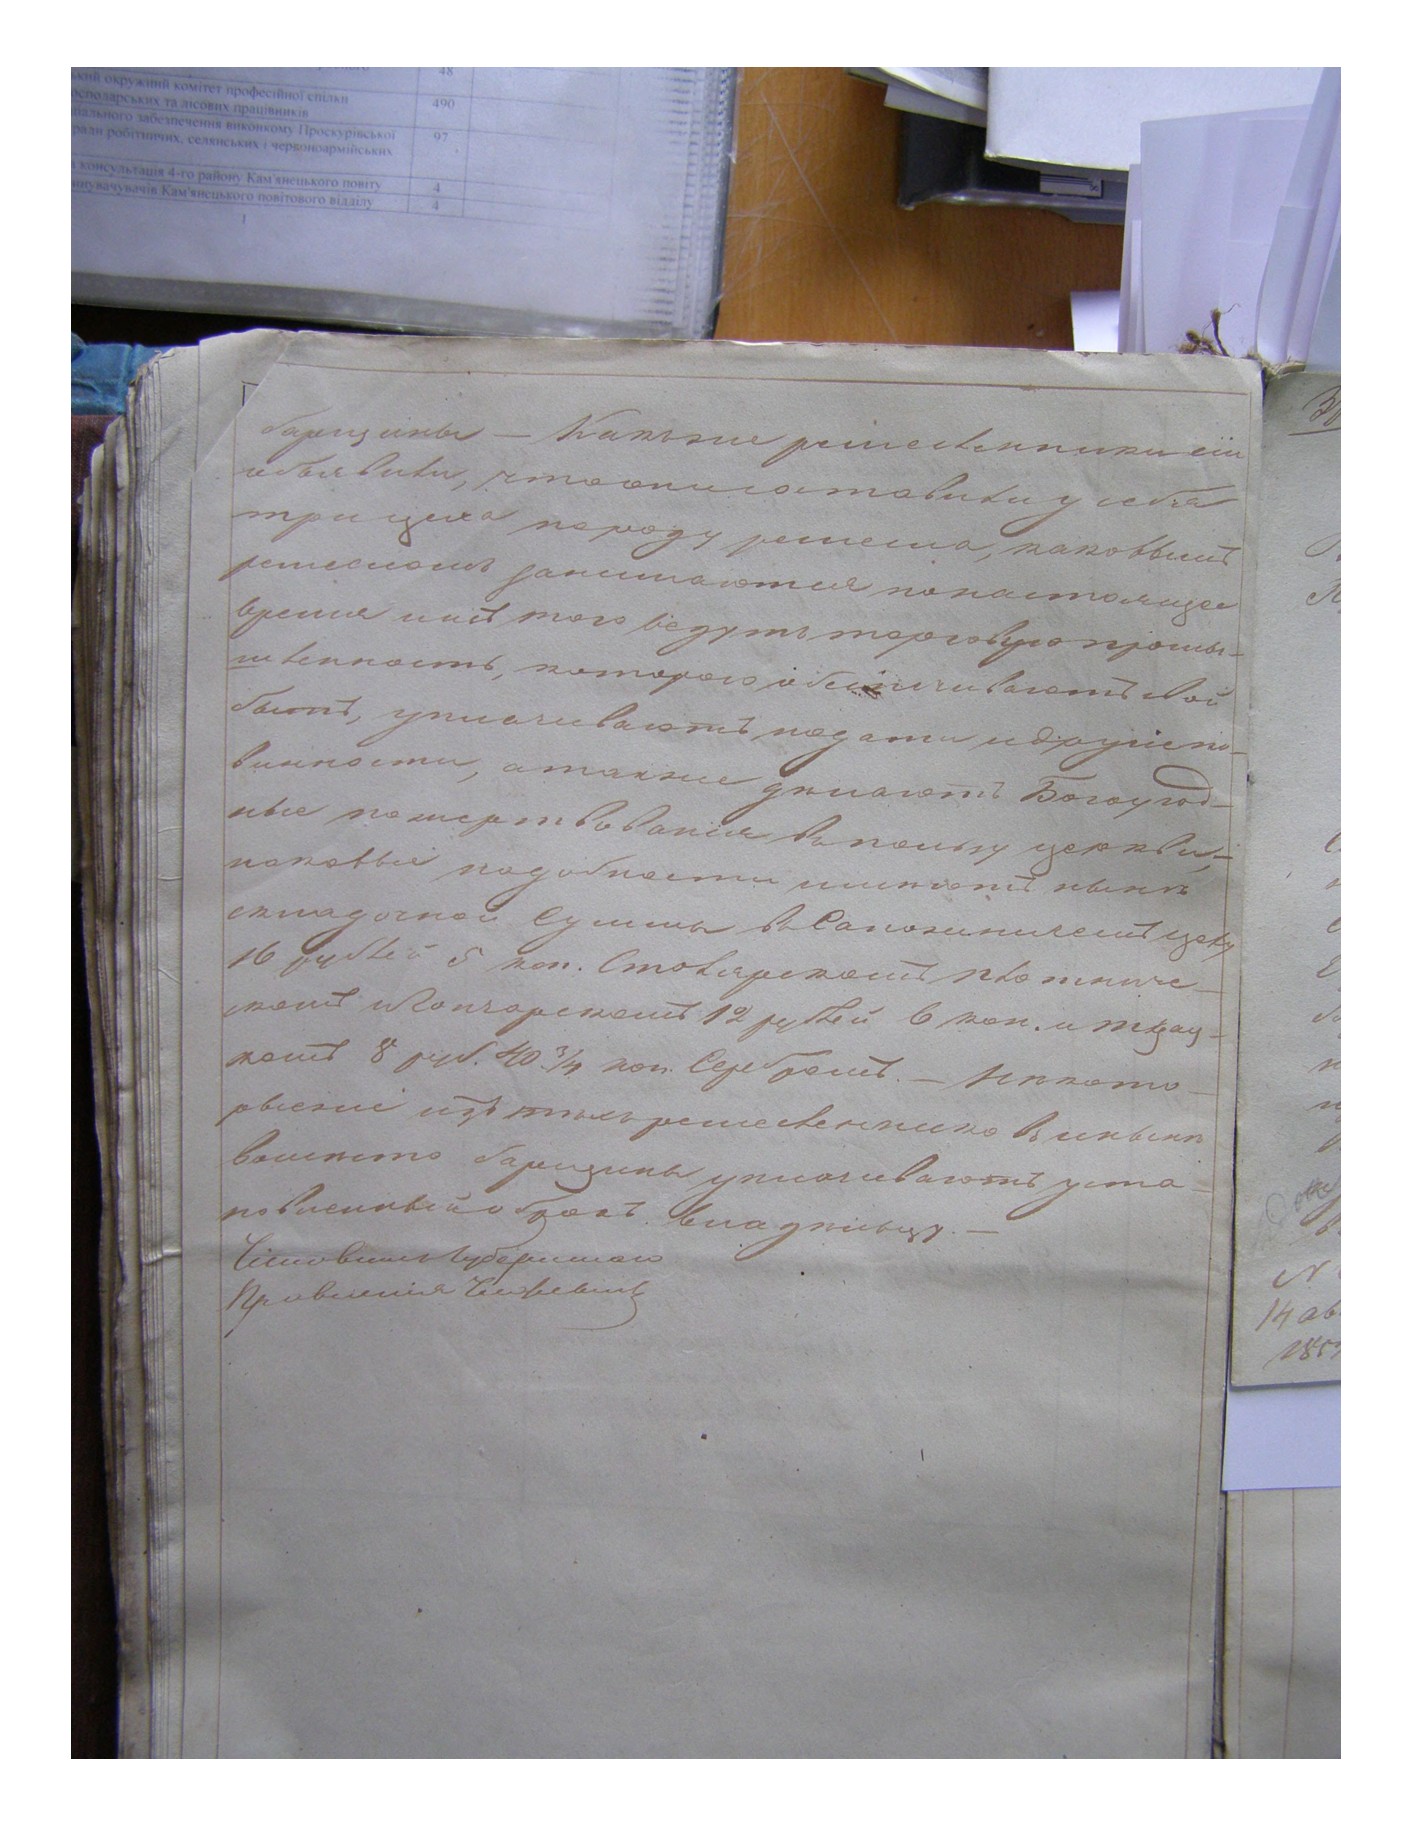 48
ький окружний комітет професійної спілки
осподарських та лісових працівників 490
іального забезпечення виконкому Проскурівської 97
ради робітничих, селянських і червоноармійських
консультація 4-го району Кам'янецького повіту 4
Кам'янецького повітового відділу 4
1
барщины — Какъ же ремесленники сіи
объявили, что они составили у себя
три цеха по роду ремесла, каковымъ
ремесломъ занимаются по настоящее
время и изъ того ведутъ торговую промы-
шленность, которою обеспечиваютъ свой
бытъ, уплачиваютъ подати и другіе по-
винности, а также дѣлаютъ Богоугод-
ные пожертвованія въ пользу церкви, —
каковые надобности имѣютъ нынѣ
складочной Суммы въ Сапожническомъ цеху
16 рублей 5 коп. Столярскомъ плотниче-
скомъ и Гончарскомъ 12 рублей 6 коп. и ткац-
комъ 8 руб. 40 3/4 коп. Серебромъ. — Нѣкото-
рые же изъ тѣхъ ремесленниковъ и нынѣ
вмѣсто барщины уплачиваютъ уста-
новленный оброкъ владѣльцу. —
Губернскаго
Правленія
14 ав
185